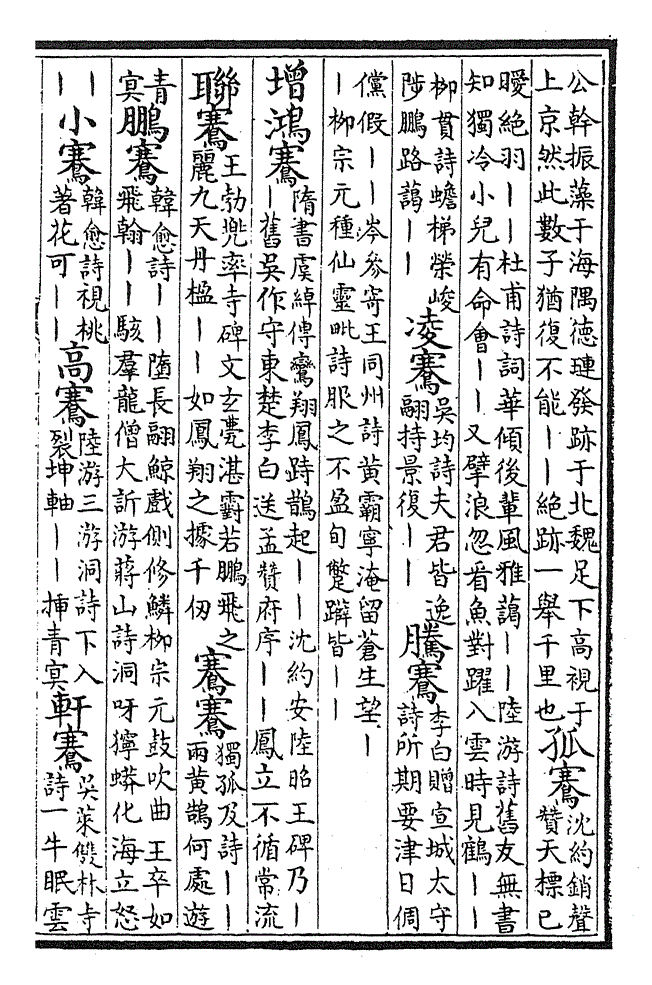 公幹振藻于海隅德璉發跡于北魏足下高視于
上京然此數子猶復不能丨丨絕跡一舉千里也
孤鶱
沈約銷聲
贊天標已
曖絕羽丨丨杜甫詩詞華傾後輩風雅藹丨丨陸游詩舊友無書
知獨冷小兒有命會丨丨又擘浪忽看魚對躍入雲時見鶴丨丨
柳貫詩蟾梯榮峻
陟鵬路藹丨丨
凌鶱
吳均詩夫君皆逸
翮持景復丨丨
騰鶱
李白贈宣城太守
詩所期要津日倜
儻假丨丨岑參寄王同州詩黃霸寧淹留蒼生望丨
丨柳宗元種仙靈毗詩服之不盈旬蹩躠皆丨丨
增鴻鶱
隋書虞綽傳鸞翔鳳跱鵲起丨丨沈約安陸昭王碑乃丨
丨舊吳作守東楚李白送孟贊府序丨丨鳳立不循常流
聯鶱
王勃兜率寺碑文玄甍湛霨若鵬飛之
麗九天丹楹丨丨如鳳翔之據千仞
鶱鶱
獨孤及詩丨丨
兩黃鵠何處遊
青
冥
鵬鶱
韓愈詩丨丨墮長翮鯨戲側修鱗柳宗元鼓吹曲王卒如
飛翰丨丨駭羣龍僧大訢游蔣山詩洞呀獰蟒化海立怒
丨
丨
小鶱
韓愈詩視桃
著花可丨丨
高鶱
陸游三游洞詩下入
裂坤軸丨丨揷青冥
軒鶱
吳萊雙林寺
詩一牛眠雲